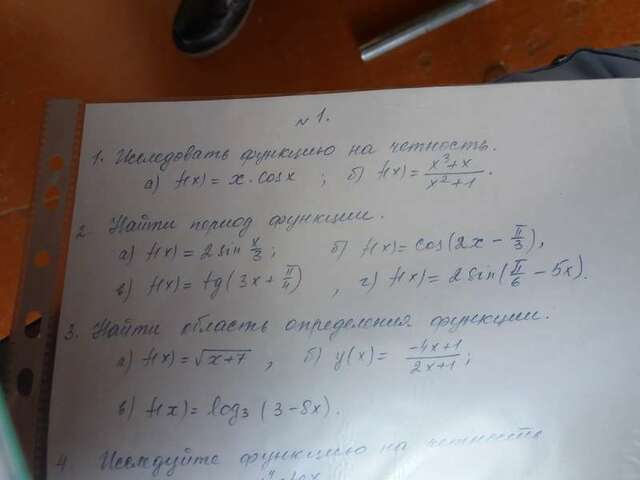 №1.
1. Исследовать функцию на четность.
а) f(x) = x · cosx ; б) f(x) = x³+x / x²+1 .
2. Найти период функции.
а) f(x) = 2 sin x/3 ; б) f(x) = cos(2x - π/3),
в) f(x) = tg(3x + π/4) , г) f(x) = 2 sin(π/6 - 5x).
3. Найти область определения функции.
а) f(x) = √x+7 , б) y(x) = -4x+1 / 2x+1 ;
в) f(x) = log₃ (3-8x).
4 Исследуйте функцию на